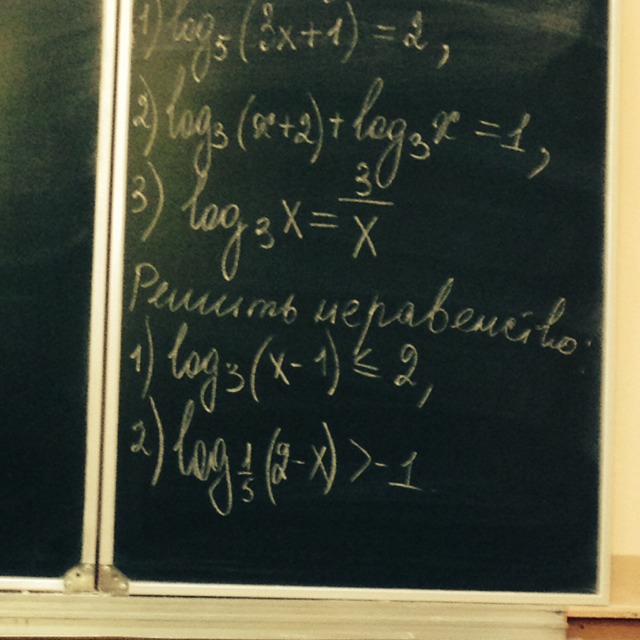 1) log₅(3x+1) = 2,
2) log₃(x+2) + log₃x = 1,
3) log₃x = 3/x
Решить неравенство:
1) log₃(x-1) ≤ 2,
2) log_{1/5}(2-x) > -1